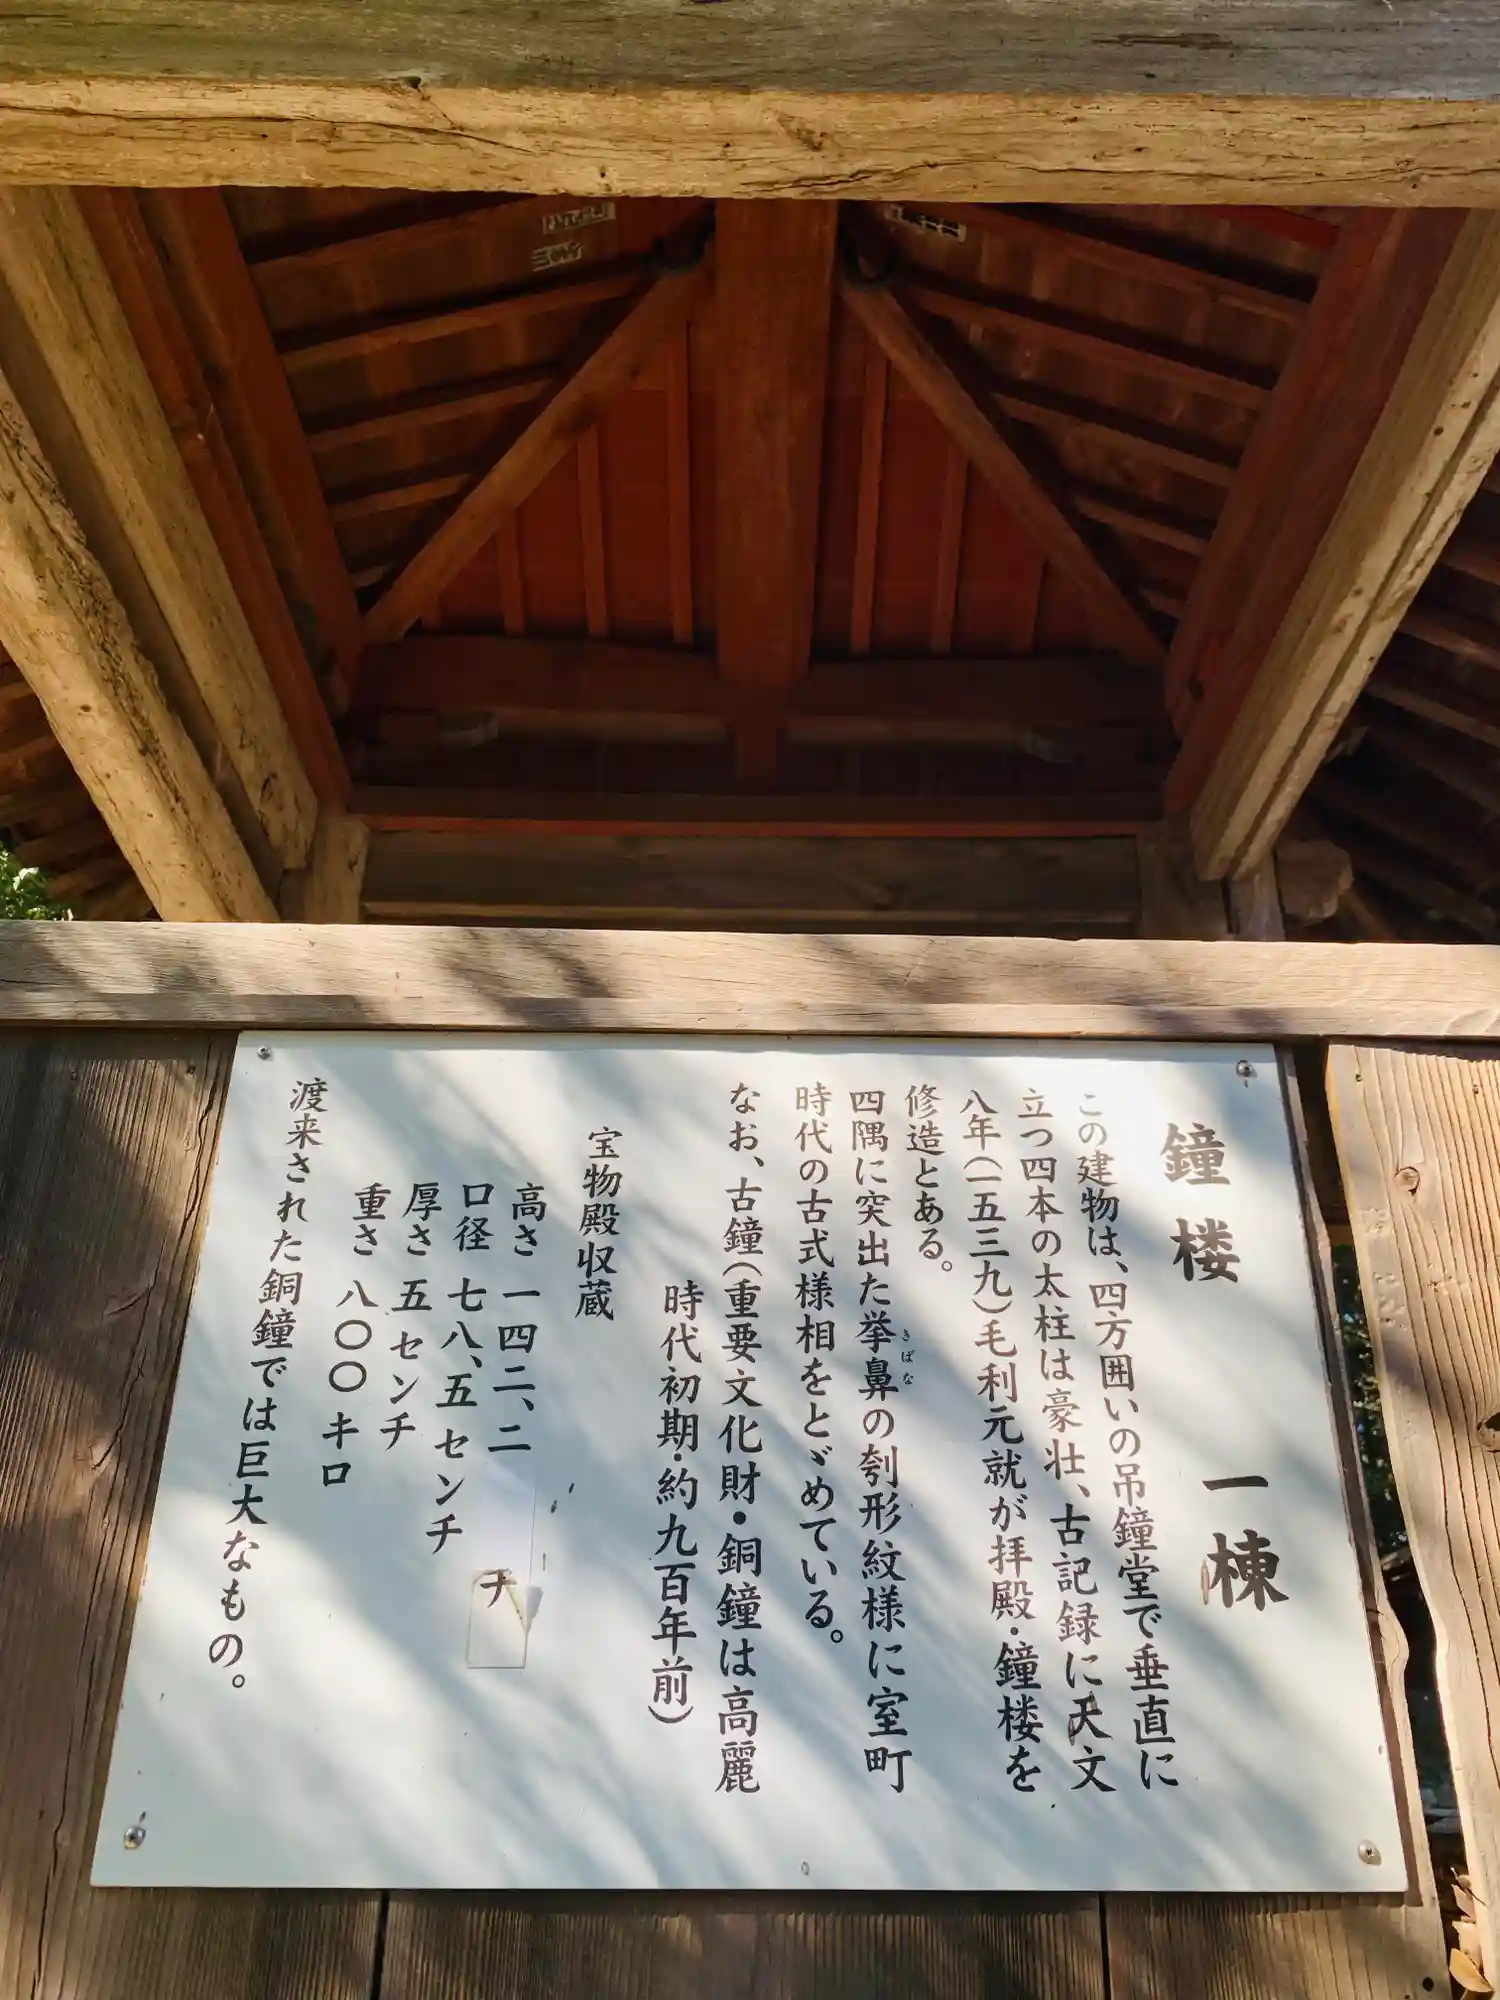 鐘楼 一棟
この建物は、四方囲いの吊鐘堂で垂直に
立つ四本の太柱は豪壮、古記録に天文
八年(一五三九)毛利元就が拝殿・鐘楼を
修造とある。
きばな
四隅に突出た挙鼻の刳形紋様に室町
時代の古式様相をとゞめている。
なお、古鐘(重要文化財・銅鐘は高麗
時代初期・約九百年前)
宝物殿収蔵
高さ 一四二、二 チ
口径 七八、五センチ
厚さ 五センチ
重さ 八〇〇キロ
渡来された銅鐘では巨大なもの。